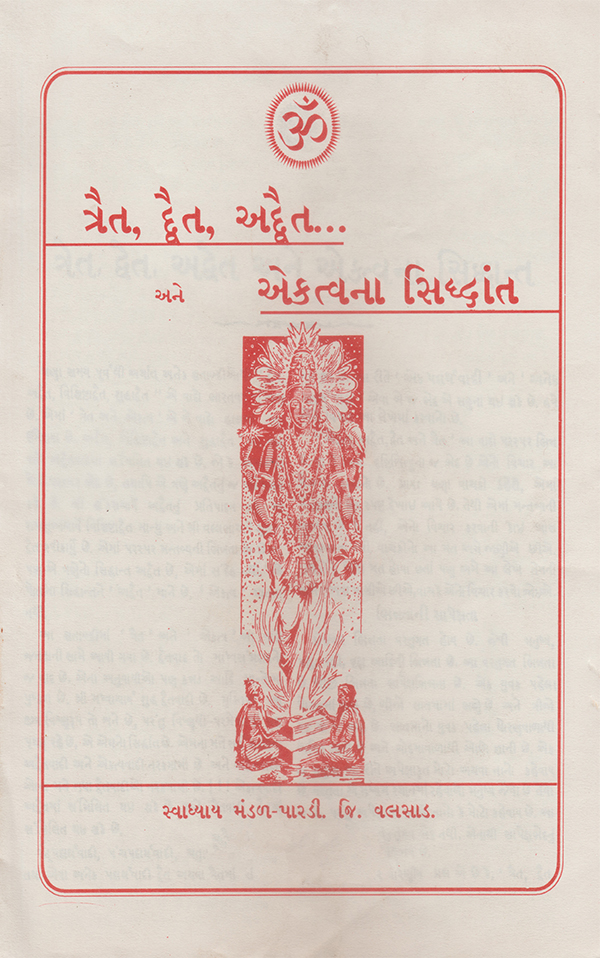 ૐ
ત્રૈત, દ્વૈત, અદ્વૈત...
અને એકત્વના સિધ્ધાંત
સ્વાધ્યાય મંડળ-પારડી. જિ. વલસાડ.